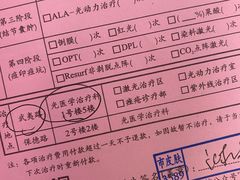 第三阶段
(结节囊肿)
□ALA—光动力治疗( )次
第四阶段
(痘印痘坑)
□倒膜( )次 □红光( )次
□OPT( )次 □DPL( )次 □染料激光( )
□欧美娜( )次 □Emax( )次 □CO₂点阵激光
□Resurf非剥脱点阵( )次
治疗地点
武夷路
光医学治疗科
1号楼5楼
□激光治疗区 □光动力治疗室
□痤疮诊疗部 □紫外线治疗区
保德路 2号楼2楼
注：各项治疗费用付款超过一天不予退款，如因故暂不治疗，请于当
下次治疗时重新付款。
市皮肤